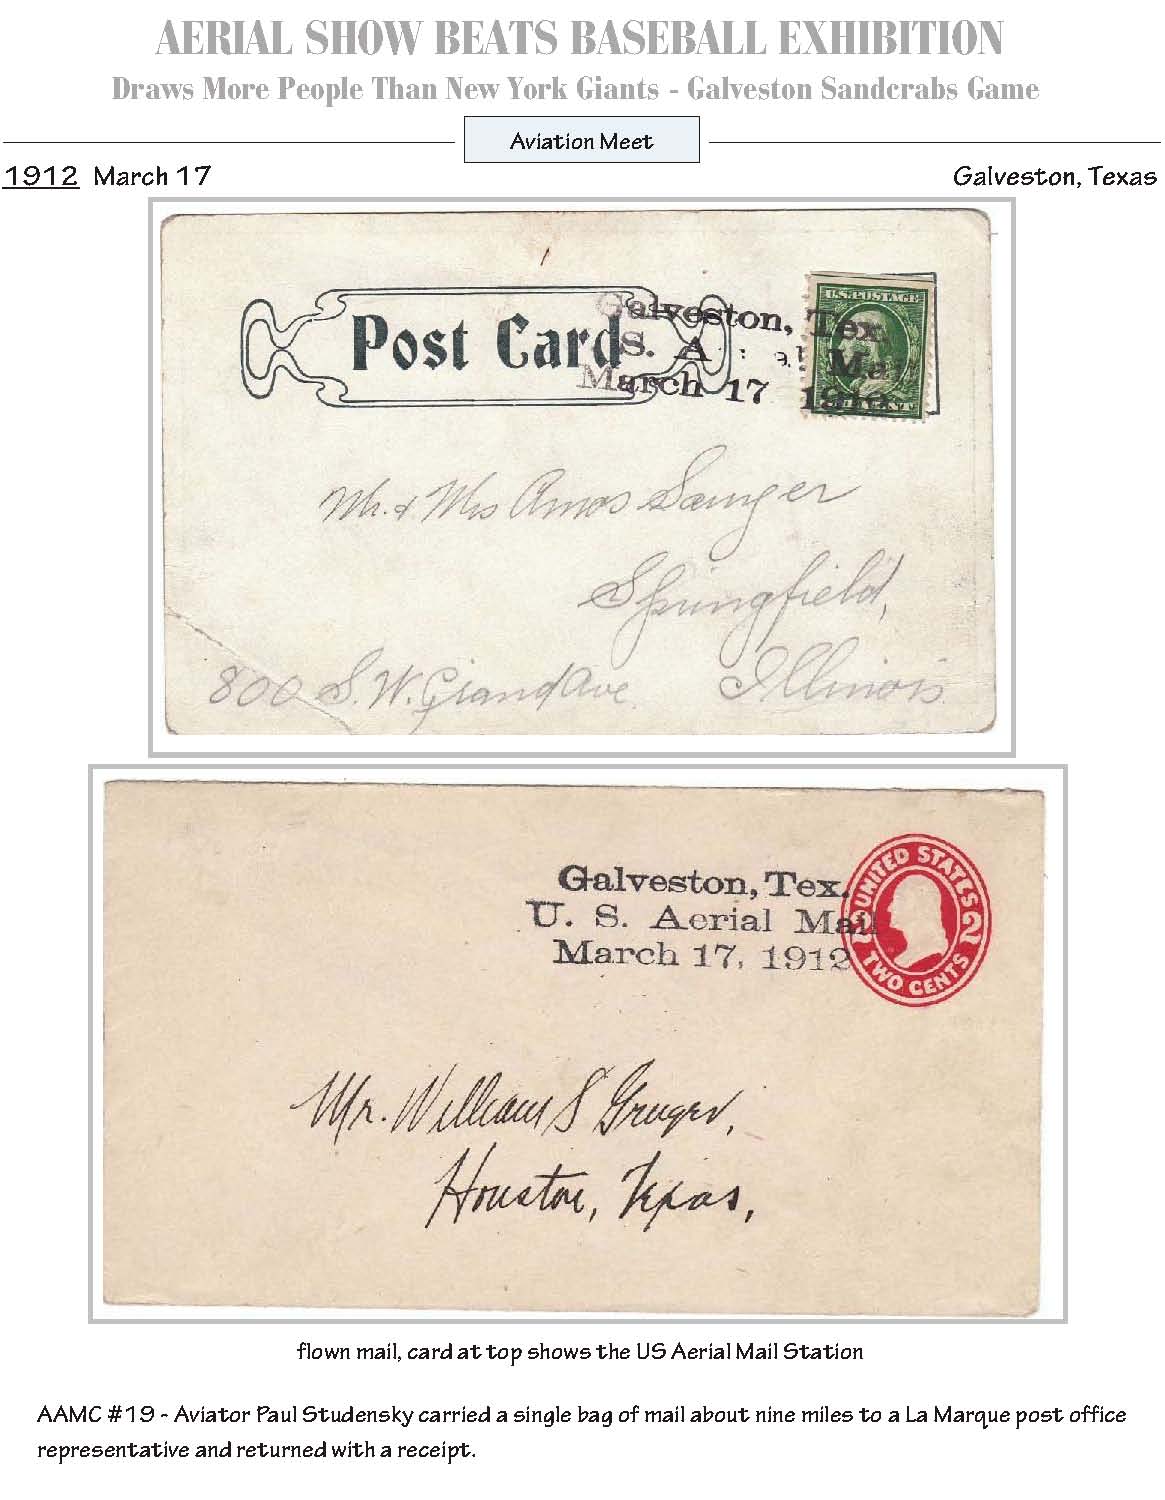 AERIAL SHOW BEATS BASEBALL EXHIBITION
Draws More People Than New York Giants - Galveston Sandcrabs Game
Aviation Meet
1912 March 17
Galveston, Texas
Post Card
Galveston, Tex.
S. A al Ma
March 17 191
U.S. POSTAGE
CENT
Mr. & Mrs Amos Sawyer
Springfield,
800 S. W. Grand Ave. Illinois.
Galveston, Tex.
U. S. Aerial Mail
March 17, 1912
UNITED STATES
2 2
TWO CENTS
Mr. William S
Houston, Texas,
flown mail, card at top shows the US Aerial Mail Station
AAMC #19 - Aviator Paul Studensky carried a single bag of mail about nine miles to a La Marque post office
representative and returned with a receipt.